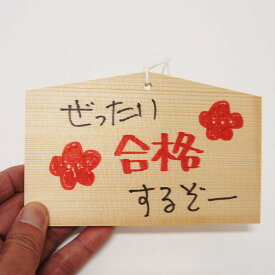 ぜったい
合格
するぞー